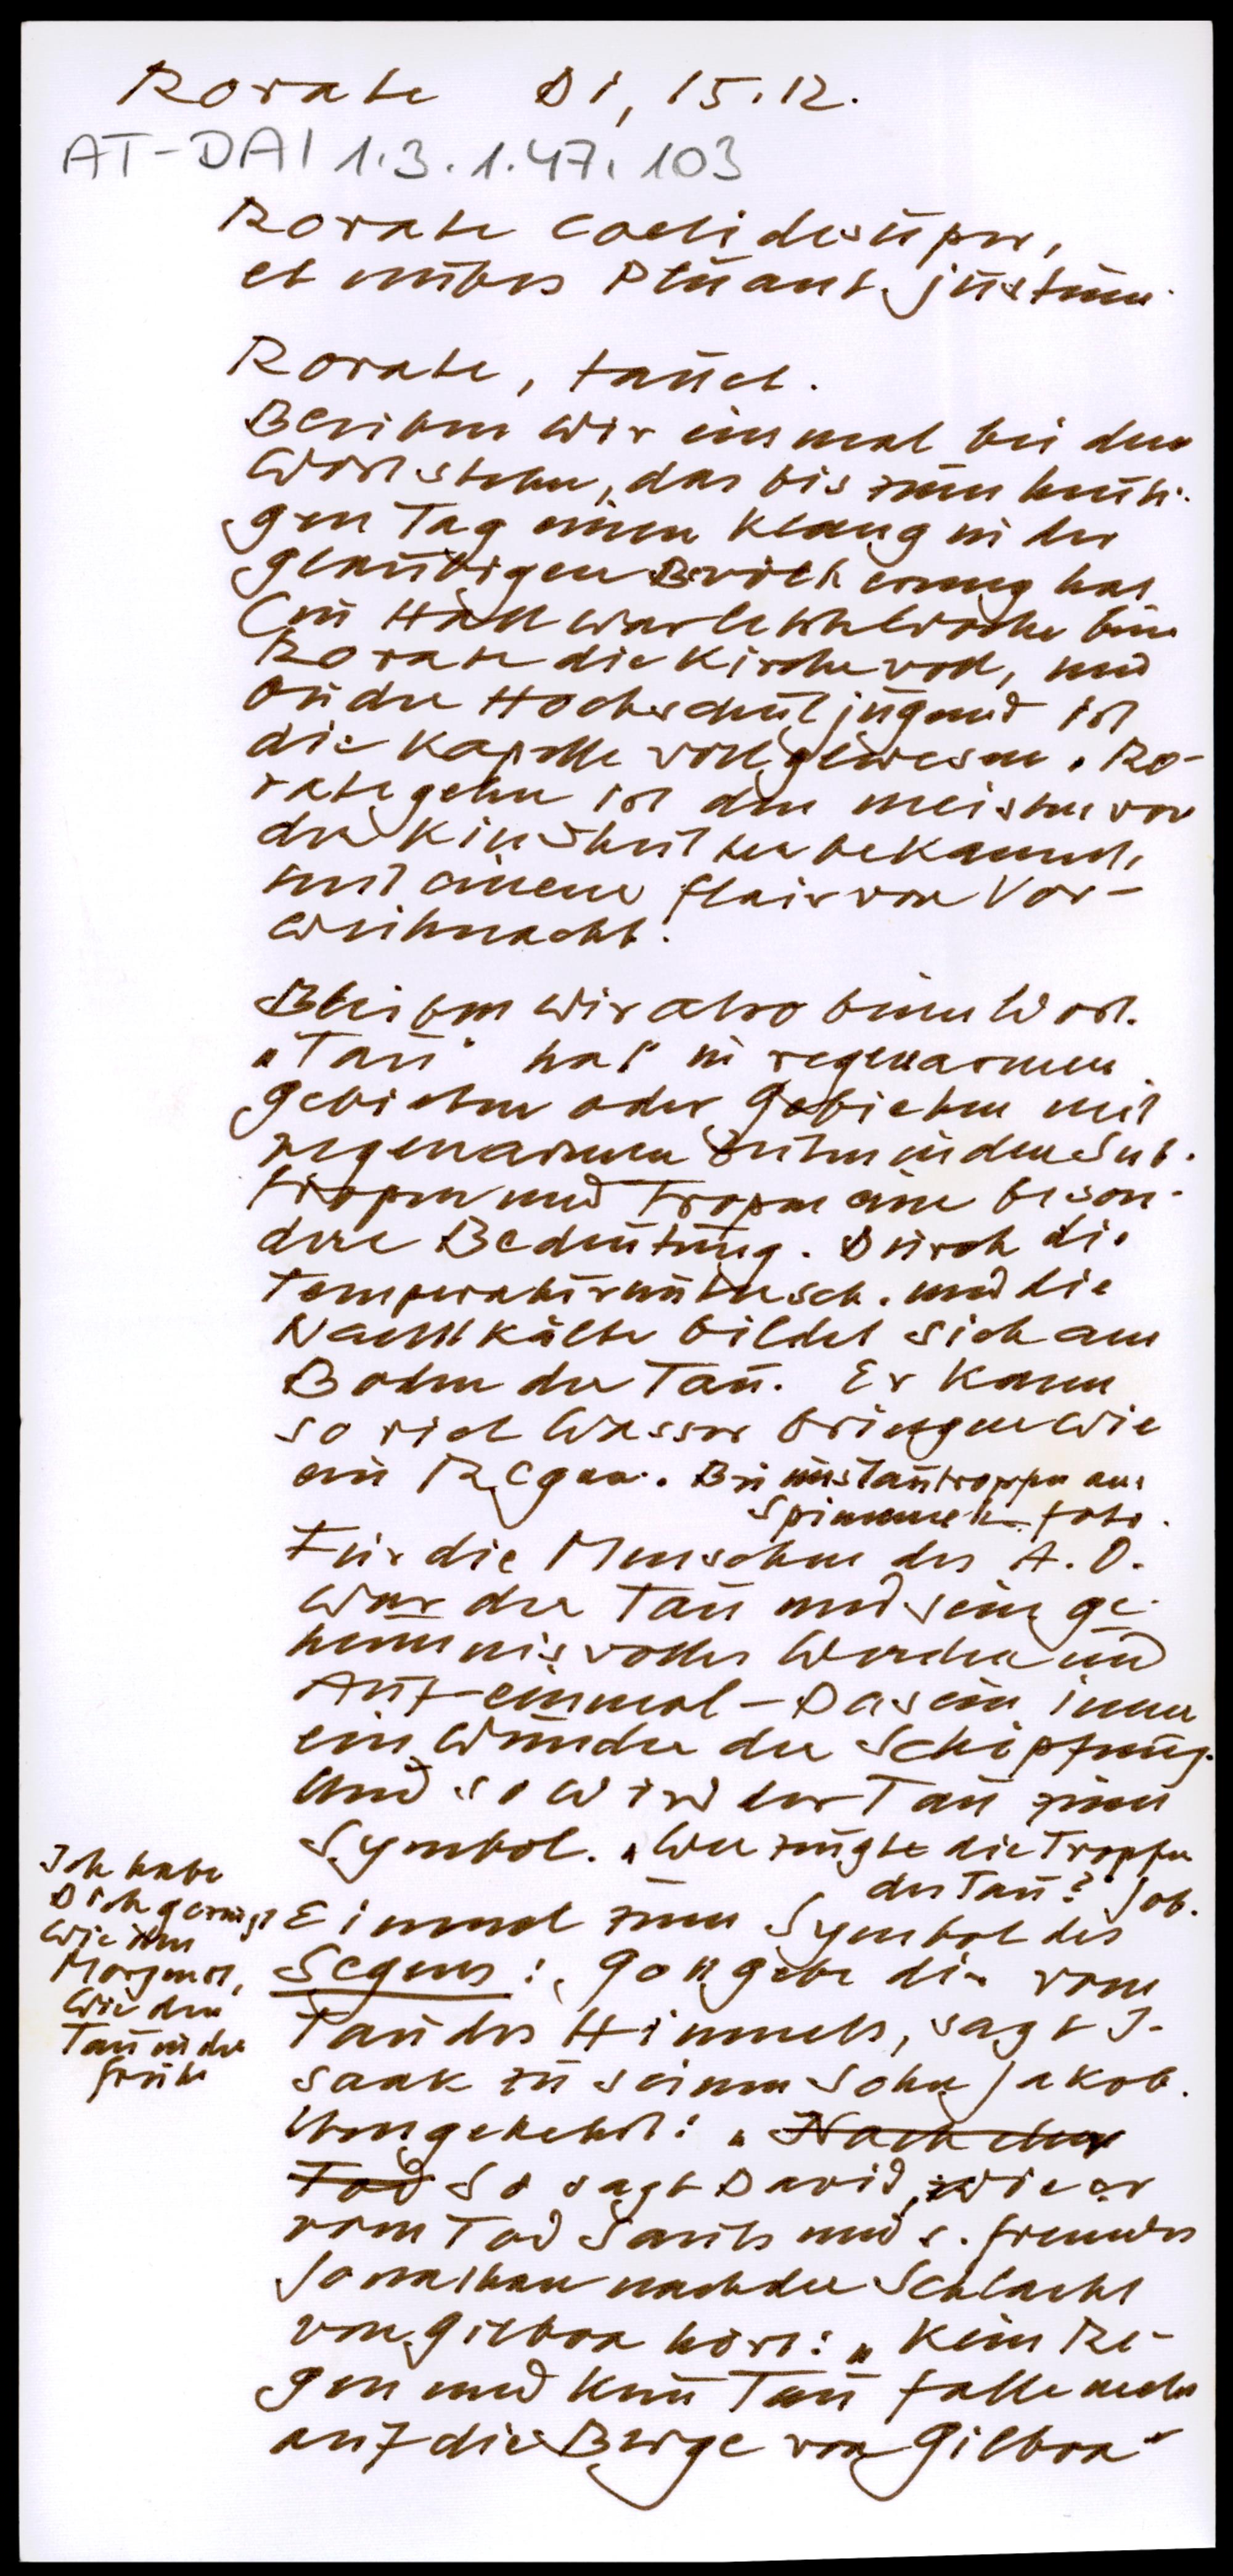 Rorate Di, 15.12.
AT-DAI 1.3.1.47.103
Rorate coeli desuper,
et nubes pluant justum.
Rorate, tauet.
Bleiben wir einmal bei dem
Wort stehn, das bis zum heuti-
gen Tag einen Klang in der
gläubigen Bevölkerung hat
(in Hall war letzte Woche beim
Rorate die Kirche voll, und
bei der Hochschuljugend ist
die Kapelle voll gewesen. Ro-
rategehn ist den meisten von
der Kindheit her bekannt,
mit einem Flair von Vor-
weihnacht.
Bleiben wir also beim Wort.
"Tau" hat in regenarmen
Gebieten oder Gebieten mit
regenarmen Zeiten in den Sub-
tropen und Tropen eine beson-
dere Bedeutung. Durch die
Temperaturuntersch. und die
Nachtkälte bildet sich am
Boden der Tau. Er kann
so viel Wasser bringen wie
ein Regen. Bei uns Tautropfen am
Spinnnetz Foto.
Für die Menschen des A. O.
war der Tau und sein ge-
heimnisvolles Werden und
Auf-einmal-Dasein immer
ein Wunder der Schöpfung.
Und so wird der Tau zum
Symbol. "Wer zeugte die Tropfen
des Tau?" Job.
Ich habe
Dich gezeugt
wie den
Morgenst,
wie den
Tau in der
Frühe
Einmal zum Symbol des
Segens: "Gott gebe dir vom
Tau des Himmels, sagt I-
saak zu seinem Sohn Jakob.
Umgekehrt: "Nach dem
Tod So sagt David, wie er
vom Tod Sauls und s. Freundes
Jonathan nach der Schlacht
von Gilboa hört: "Kein Re-
gen und kein Tau falle mehr
auf die Berge von Gilboa"